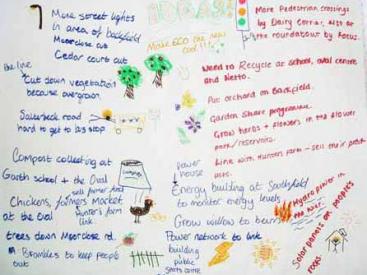 More street lights
in area of backfield
Moorclose cut
Cedar court cut
IDEAS
Make ECO the new
cool !!!
More Pedestrian crossings
by Dairy corner, also at
the roundabout by
the line
Cut down vegetation
because overgrown
Need to Recycle at school, oval centre
and Netto.
Put orchard on Backfield.
Salterbeck road
hard to get to bus stop
Garden Share programme
Grow herbs + flowers in the flower
park/reservoirs.
Link with Hunters farm - sell their
Compost collecting at
Garth school + the Oval
compost
power
house
Energy building at Southfield
to monitor energy levels
Chickens, farmers Market
at the Oval
link
Hydro power in
the river.
Grow willow to burn
trees down Moorclose rd.
Power network to link
building
public
Brambles to keep people
out
Solar panels on